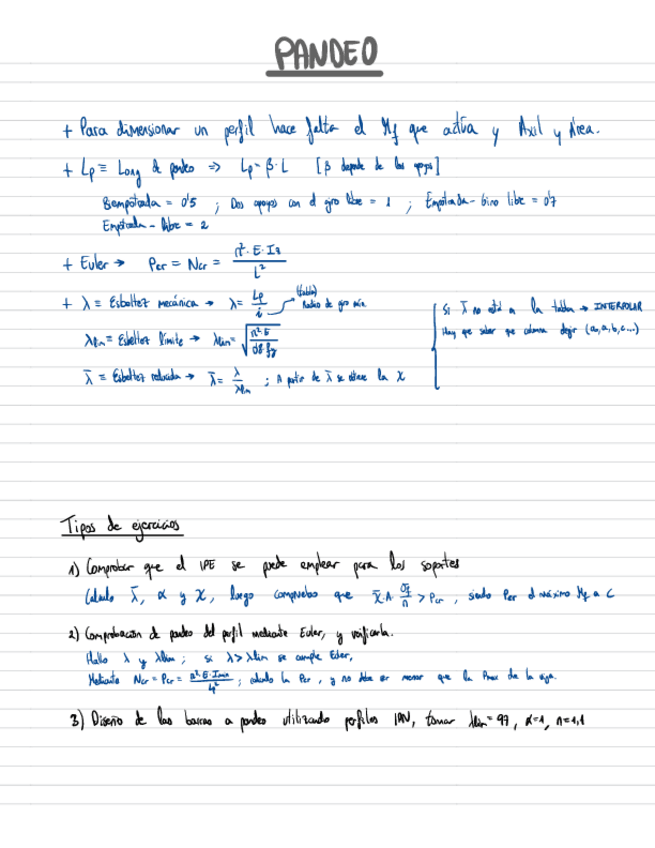 PANDEO
+ Para dimensionar un perfil hace falta el Mf que actúa y Axil y Área.
+ Lp ≡ Long de pandeo => Lp = β·L [β depende de los apoyos]
Biempotrada = 0'5 ; Dos apoyos con el giro libre = 1 ; Empotrada - Giro libre = 0'7
Empotrada - libre = 2
+ Euler → Pcr = Ncr = π²·E·Iz / L²
+ λ = Esbeltez mecánica → λ = Lp / i → (tabla) Radio de giro min.
λlim = Esbeltez límite → λlim = √(π²·E / fy)
λ̄ = Esbeltez reducida → λ̄ = λ / λlim ; A partir de λ̄ se obtiene la χ
Si λ̄ no está en la tabla → INTERPOLAR
Hay que saber que columna elegir (a₀, a, b, c...)
Tipos de ejercicios
1) Comprobar que el IPE se puede emplear para los soportes
Calculo λ̄, α y χ, luego compruebo que χ·A· σf / n > Pcr, siendo Pcr el máximo Mf a C
2) Comprobación de pandeo del perfil mediante Euler, y verificarla.
Hallo λ y λlim ; si λ > λlim se cumple Euler,
Mediante Ncr = Pcr = π²·E·Imin / Lp² ; calculo la Pcr, y no debe ser menor que la Pmax de la viga.
3) Diseño de las barras a pandeo utilizando perfiles IPN, tomar λlim = 97, α=1, n=1,1